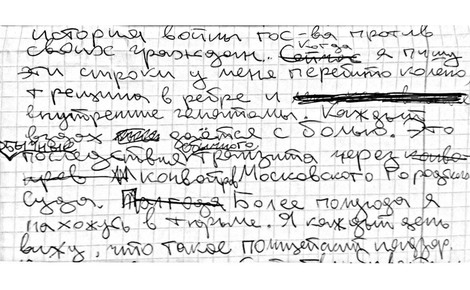 история войны гос-ва против
своих граждан. Сейчас Когда я пишу
эти строки у меня перебито колено,
трещина в ребре и
внутренние гематомы. Каждый
вздох даётся с болью. Это
обычные последствия обычного транзита через конво
конвойгов Московского Городского
суда. Полгода Более полугода я
нахожусь в тюрьме. Я каждый день
вижу, что такое полицейский